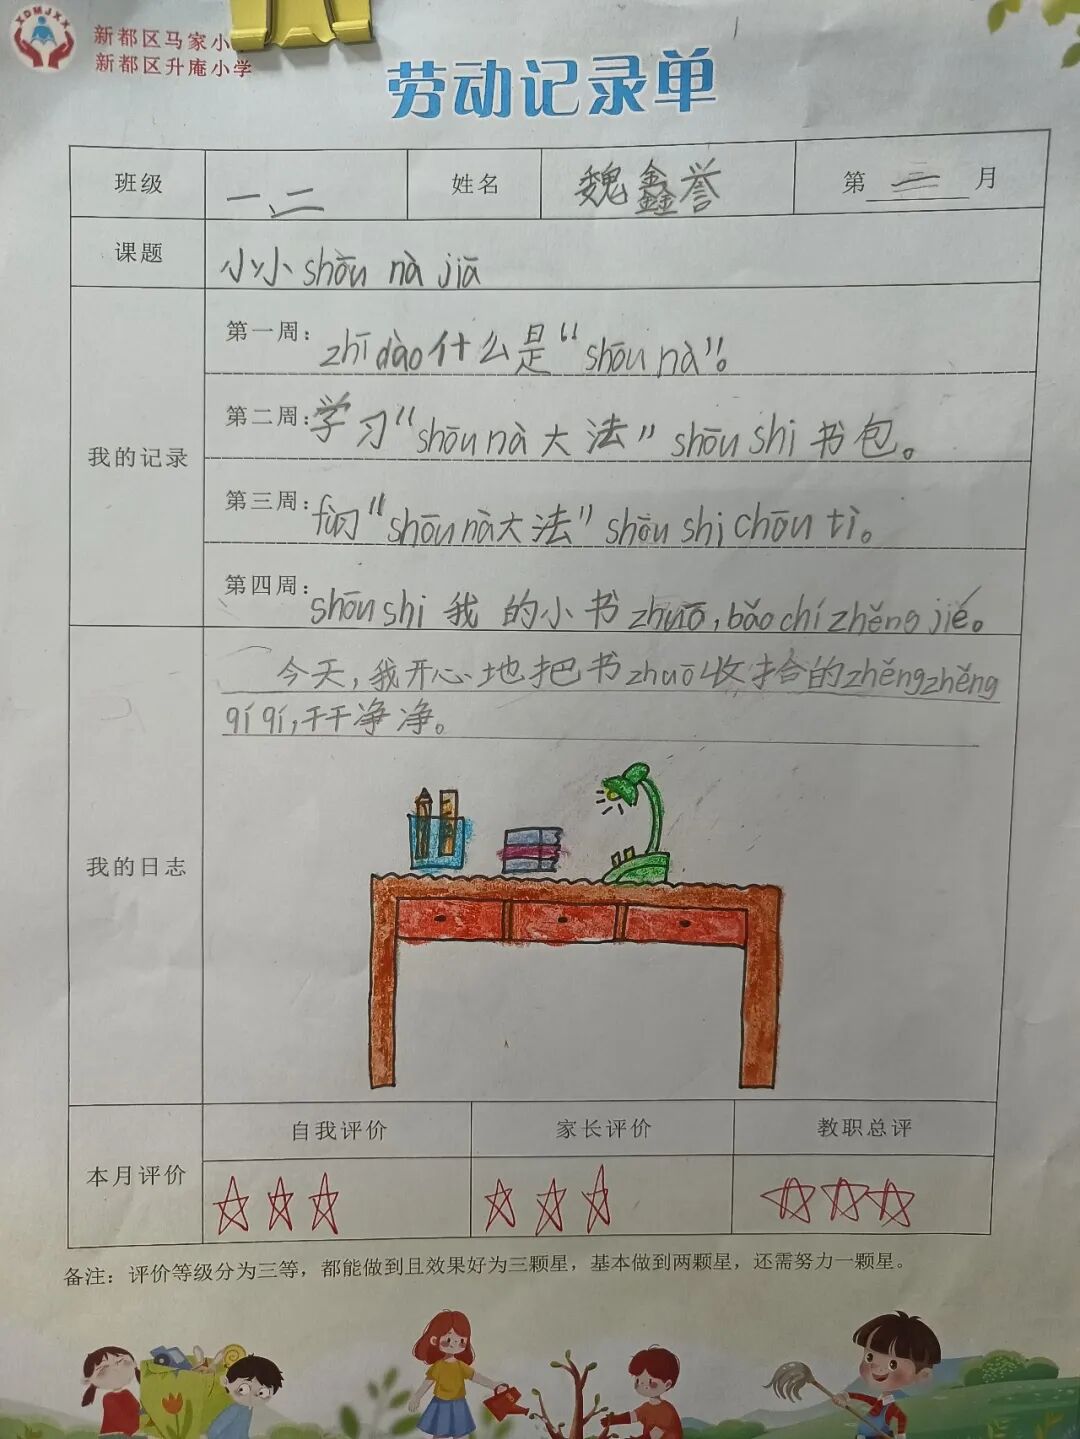 XDMJXX
新都区马家小
新都区升庵小学
劳动记录单
班级 一、二 姓名 魏鑫誉 第 三 月
课题 小小 shōu nà jiā
我的记录
第一周: zhī dào 什么是“shōu nà”。
第二周: 学习“shōu nà 大法” shōu shi 书包。
第三周: “shōu nà 大法” shōu shi chōu tì。
第四周: shōu shi 我 的小书 zhuō, bǎo chí zhěng jié。
我的日志
今天,我开心地把书 zhuō 收拾的 zhěng zhěng
qí qí,干干净净。
本月评价
自我评价 家长评价 教职总评
☆☆☆ ☆☆☆ ☆☆☆
备注：评价等级分为三等，都能做到且效果好为三颗星，基本做到两颗星，还需努力一颗星。